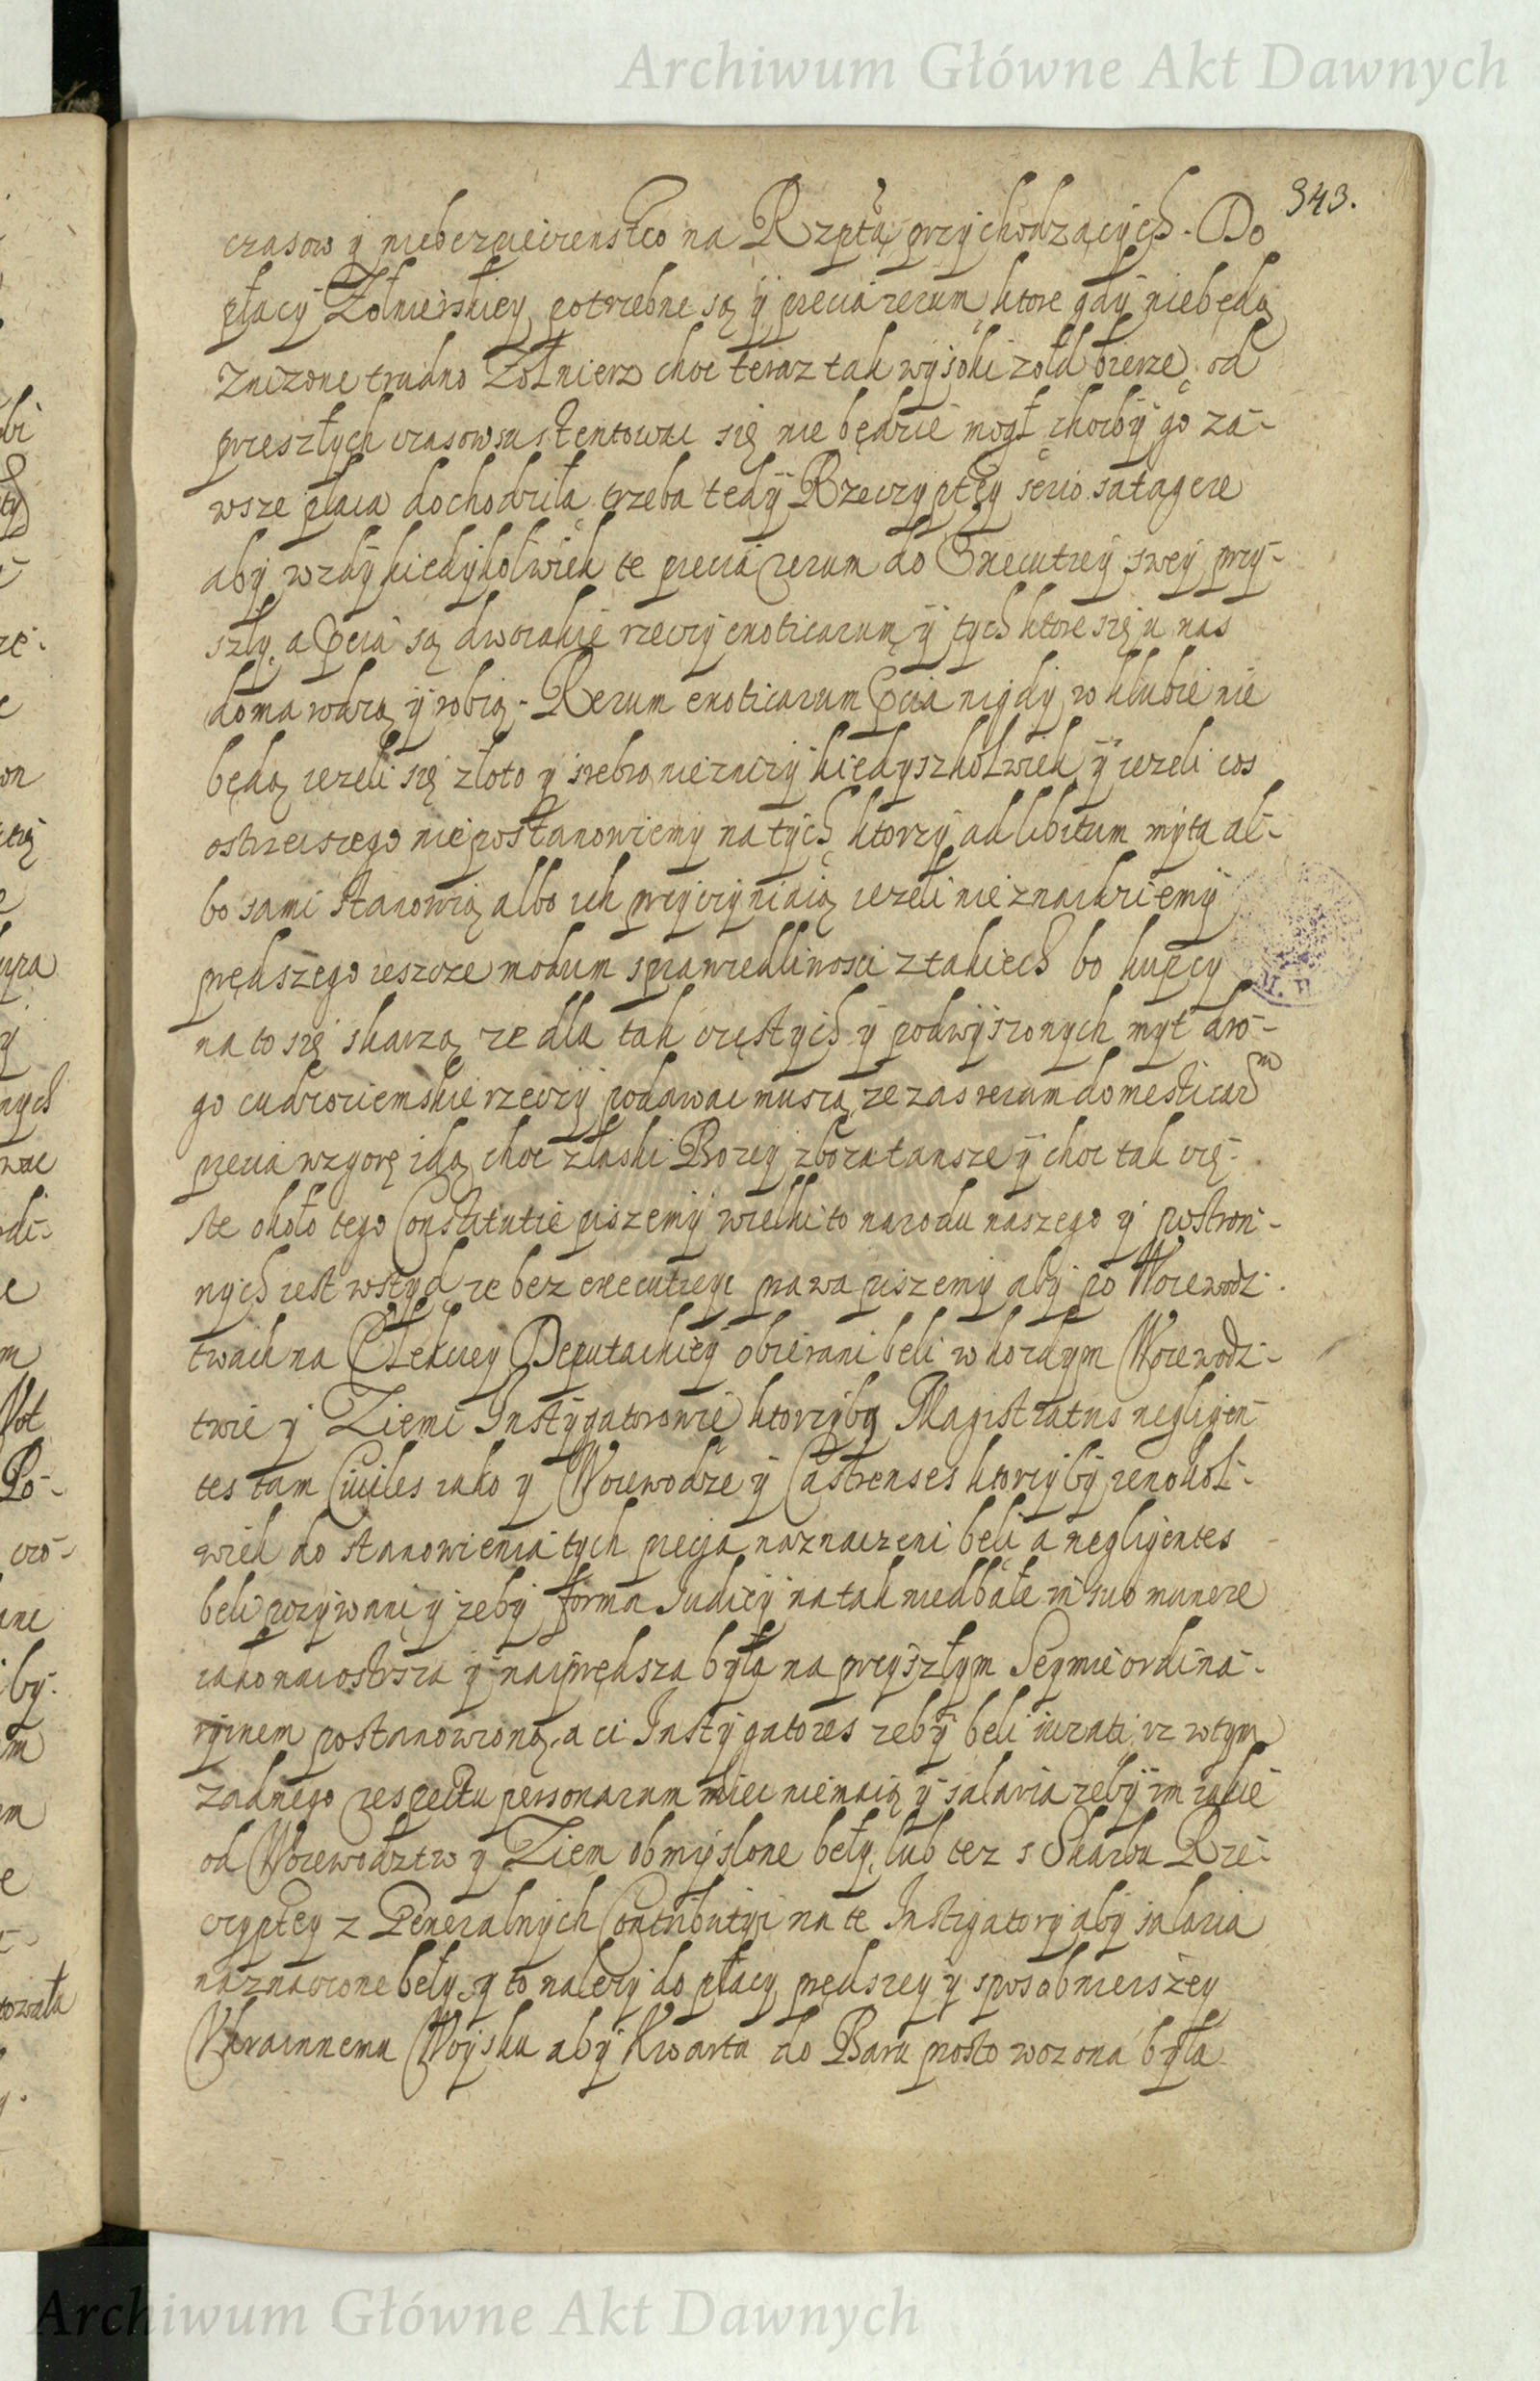 Archiwum Główne Akt Dawnych
343.
czasow y niebezpieczenstw na Rzptą przychodzących. Do
płacy Zołnierskiey potrzebne są y precia rerum ktore gdy niebędą
znizone trudno Zołnierz choc teraz tak wysoki zołd bierze od
przeszłych czasow sustentowac się nie będzie mogł chocby go za-
wsze płaca dochodziła trzeba tedy Rzeczyptey serio satagere
aby wzdy kiedykolwiek te precia rerum do Executiey swey przy-
szły, a precia są dwoiakie rzeczy exoticarum y tych ktore się u nas
doma rodzą y robią. Rerum exoticarum precia nigdy w klubie nie
będą iezeli się złoto y srebro niezniży kiedyszkolwiek y iezeli cos
ostrzeiszego niepostanowiemy na tych ktorzy ad libitum myta al-
bo sami stanowią albo ich przyczyniaią iezeli nie znaidziemy
prędszego ieszcze modum sprawiedliwosci z takiech bo kupcy
na to się skarzą ze dla tak częstych y podwyszonych myt dro-
go cudzoziemskie rzeczy podawac muszą, ze zas rerum domesticarum
precia wzgorę idą choc z łaski Bozey zboza tansze y choc tak czę-
ste około tego Constitutie piszemy wielki to narodu naszego y postron-
nych iest wstyd ze bez executiey prawa piszemy aby po Woiewodz-
twach na Elekciey Deputackiey obierani beli w kozdym Woiewodz-
twie y Ziemi Instygatorowie ktorzyby Magistratus negligen-
tes tam Ciuiles iako y Woiewodze y Castrenses ktorzyby ienokol-
wiek do stanowienia tych precia naznaczeni beli a negligentes
beli pozywani y zeby forma Iudicij na tak niedbałe in suo munere
iako naiostrsza y naiprędsza była na przyszłym Seymie ordina-
ryinem postanowiona, a ci Instygatores zeby beli iurati, iz w tym
zadnego respectu personarum miec niemaią y salaria zeby im iakie
od Woiewodztw y Ziem obmyslone beły, lub tez s Skarbu Rze-
czyptey z Generalnych Contributiy na te Instigatory aby salaria
naznaczone beły, y to nalezy do płacy prędszey y sposobnieiszey
Ukrainnemu Woysku aby Kwarta do Baru prosto wozona była
Archiwum Główne Akt Dawnych